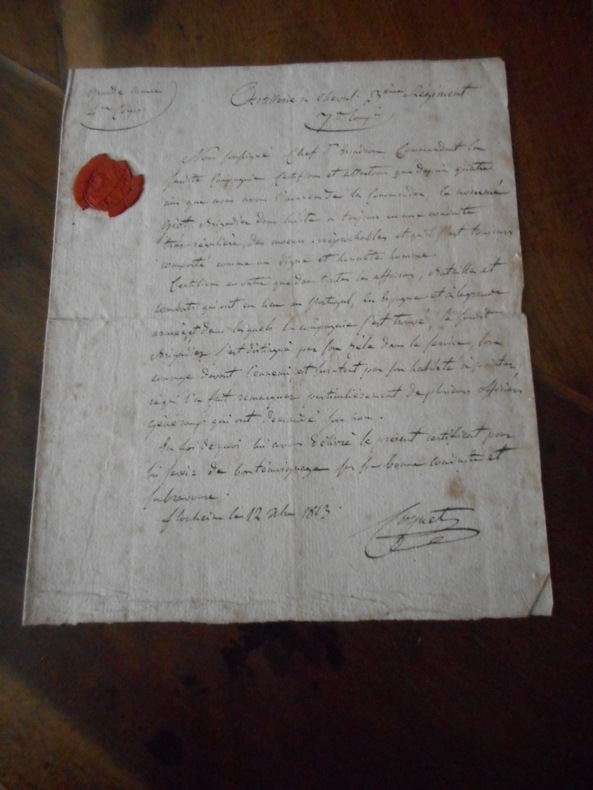 Grande Armée
4me Corps
Artillerie à Cheval. 3ème Régiment
7me Comp.ie
Nous soussigné Chef d'Escadron Commandant la
susdite Compagnie Certifions et attestons que depuis quatre
ans que nous avons l'honneur de la Commander, le nommé
Brigadier dans icelle a toujours eu une conduite
très régulière, des moeurs irréprochables et qu'il s'est toujours
comporté comme un digne et honnête homme.
Certifions en outre que dans toutes les affaires, Batailles et
combats qui ont eu lieu en Portugal, en Espagne et à la grande
armée et dans lesquels la compagnie s'est trouvé, le susdit
Brigadier s'est distingué par son zèle dans le service, son
courage devant l'ennemi et surtout par son habileté à pointer
ce qui l'a fait remarquer particulièrement de plusieurs officiers
généraux qui ont demandé son nom.
En foi de quoi lui avons délivré le présent certificat pour
lui servir de bon témoignage sur sa bonne conduite et
sa bravoure.
le 12 Xbre 1813.